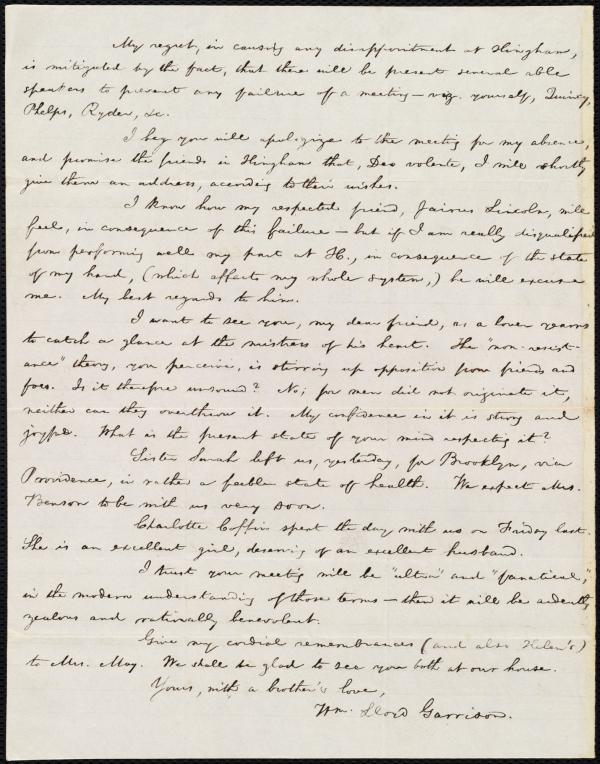 My regret, in causing any disappointment at Hingham,
is mitigated by the fact, that there will be present several able
speakers to prevent any failure of a meeting—viz. yourself, Quincy,
Phelps, Ryder, &c.
I beg you will apologize to the meeting for my absence,
and promise the friends in Hingham that, Deo volente, I will shortly
give them an address, according to their wishes.
I know how my respected friend, Jairus Lincoln, will
feel, in consequence of this failure—but if I am really disqualified
from performing well my part at H., in consequence of the state
of my hand, (which affects my whole system,) he will excuse
me. My best regards to him.
I want to see you, my dear friend, as a lover yearns
to catch a glance at the mistress of his heart. The "non-resist-
ance" theory, you perceive, is stirring up opposition from friends and
foes. Is it therefore unsound? No; for men did not originate it,
neither can they overthrow it. My confidence in it is strong and
joyful. What is the present state of your mind respecting it?
Sister Sarah left us, yesterday, for Brooklyn, via
Providence, in rather a feeble state of health. We expect Mrs.
Benson to be with us very soon.
Charlotte Coffin spent the day with us on Friday last.
She is an excellent girl, deserving of an excellent husband.
I trust your meeting will be "ultra" and "fanatical,"
in the modern understanding of those terms—then it will be ardently
zealous and rationally benevolent.
Give my cordial remembrances (and also Helen's)
to Mrs. May. We shall be glad to see you both at our house.
Yours, with a brother's love,
Wm. Lloyd Garrison.